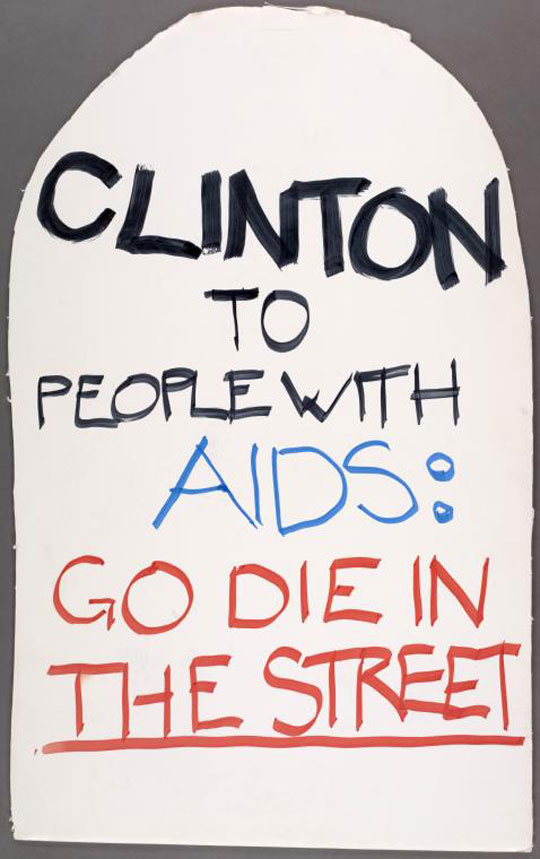 CLINTON
TO
PEOPLE WITH
AIDS:
GO DIE IN
THE STREET